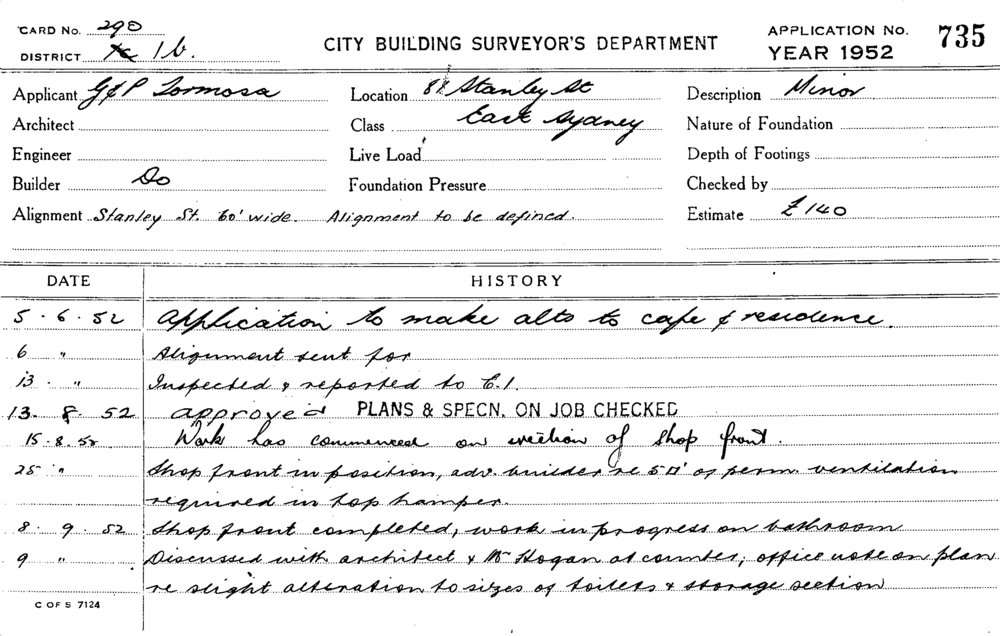 CARD No. 290
DISTRICT 1b.
CITY BUILDING SURVEYOR'S DEPARTMENT
APPLICATION No. 735
YEAR 1952
Applicant G & P Tormosa
Location 88 Stanley St
Description Minor
Architect
Class East Sydney
Nature of Foundation
Engineer
Live Load
Depth of Footings
Builder Do
Foundation Pressure
Checked by
Alignment Stanley St. 60' wide. Alignment to be defined.
Estimate £140
DATE HISTORY
5 . 6 . 52 Application to make alts to cafe & residence.
6 " Alignment sent for
13 . " Inspected & reported to C.I.
13. 8. 52 approved PLANS & SPECN. ON JOB CHECKED
15.8.52 Work has commenced on erection of shop front.
25 " Shop front in position, adv. builder re 5□' of perm. ventilation
required in top hamper.
8 . 9 . 52 Shop front completed, work in progress on bathroom
9 " Discussed with architect & Mr Hogan at counter; office note on plan
re slight alteration to sizes of toilets & storage section
C OF S 7124